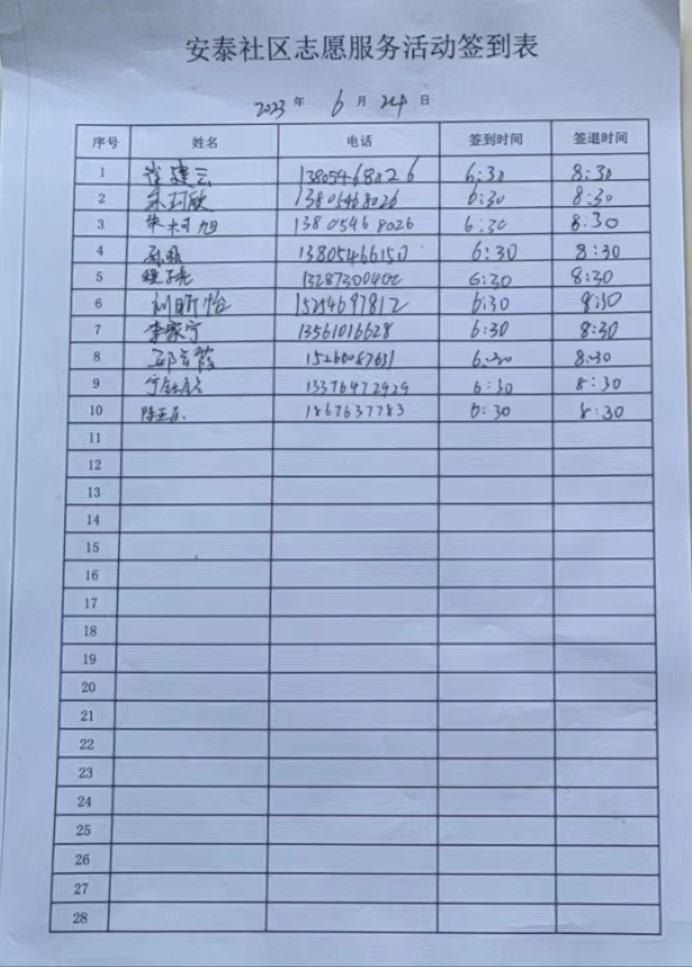 安泰社区志愿服务活动签到表
2023 年 6 月 24 日
序号 姓名 电话 签到时间 签退时间
1 崔建云 13805468026 6:30 8:30
2 朱珂欣 13805468026 6:30 8:30
3 朱柯旭 13805468026 6:30 8:30
4 13805466150 6:30 8:30
5 程子尧 6:30 8:30
6 刘昕怡 15254697812 6:30 8:30
7 李家宁 13561016628 6:30 8:30
8 6:30 8:30
9 13376472929 6:30 8:30
10 1867637783 6:30 8:30
11
12
13
14
15
16
17
18
19
20
21
22
23
24
25
26
27
28